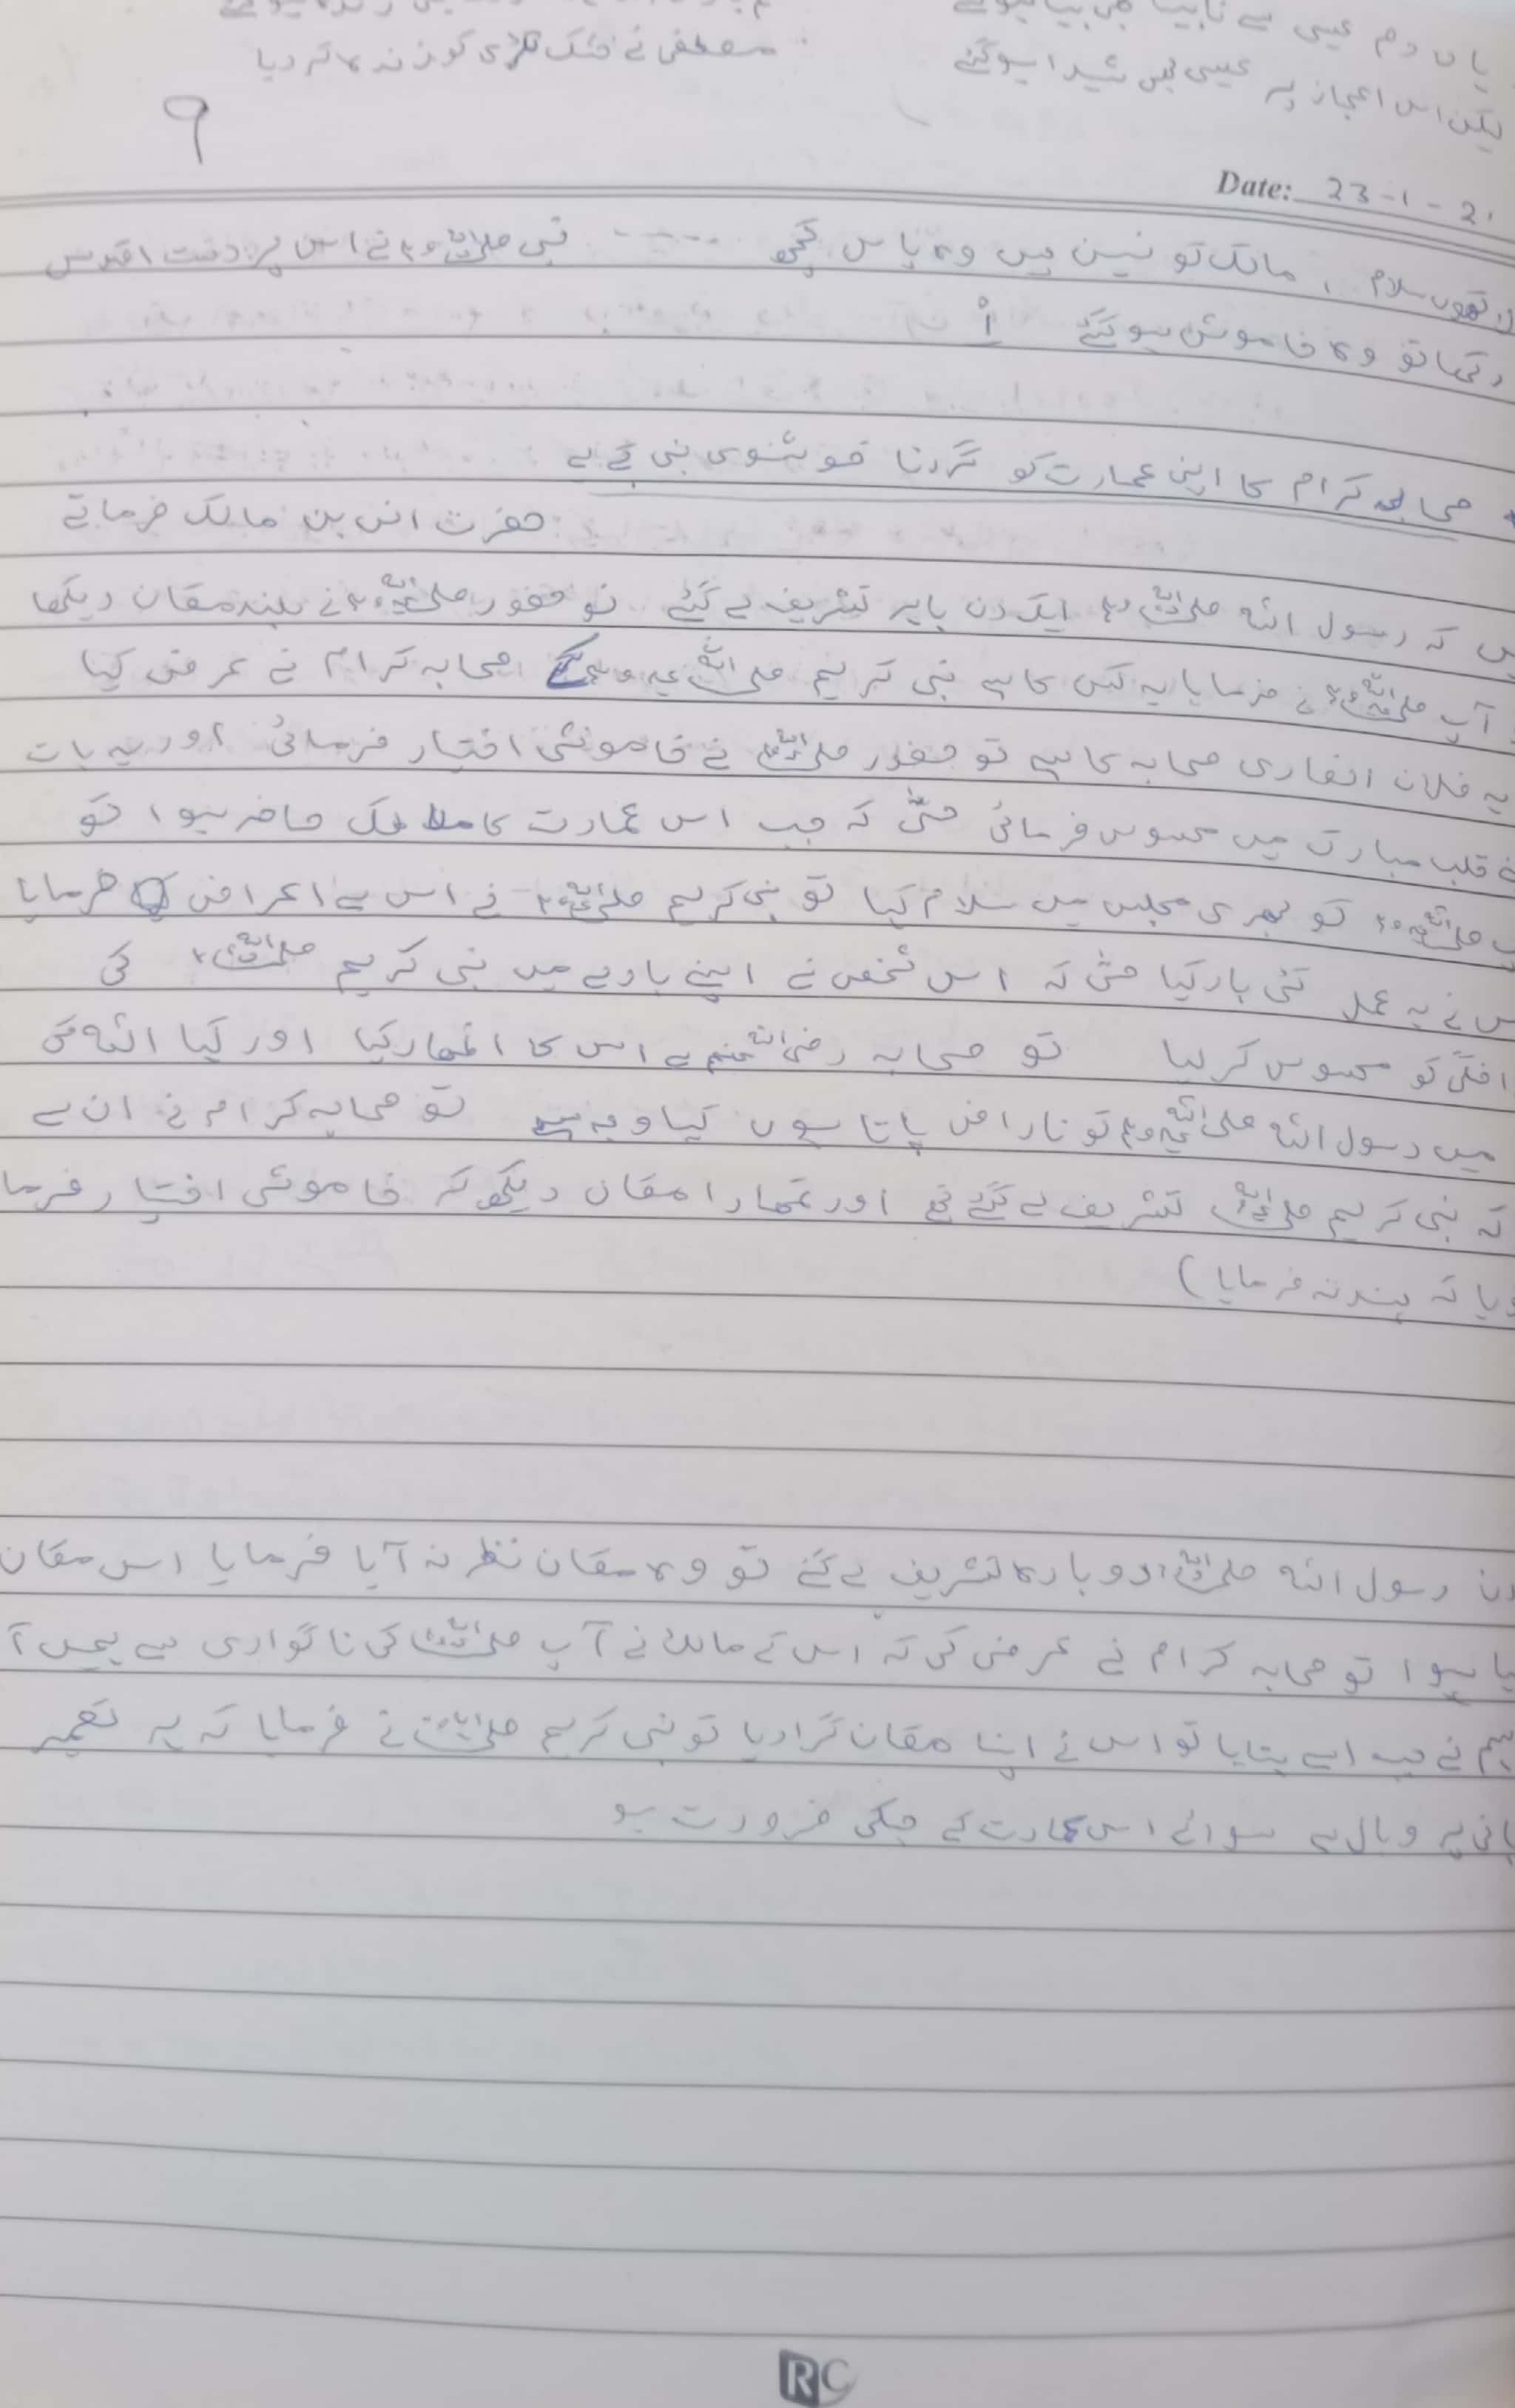 یاں دم عیسی سے نابینا بھی بینا ہوئے
لیکن اس اعجاز پہ عیسی بھی شیدا ہو گئے مصطفی نے خشک لکڑی کو زندہ کر دیا
۹
Date: 23-1-21
سلام ، مالک تو نہیں میں وہ پاس کچھ ------ نبی صلی اللہ علیہ وسلم نے اس پر دست اقدس
رکھا تو وہ خاموش ہو گئے
صحابہ کرام کا اپنی عمارت کو گردنا خوشنودی نبی کے لیے
حضرت انس بن مالک فرماتے
ہیں کہ رسول اللہ صلی اللہ علیہ وسلم ایک دن باہر تشریف لے گئے تو حضور صلی اللہ علیہ وسلم نے بلند مقان دیکھا
آپ صلی اللہ علیہ وسلم نے فرمایا یہ کس کا ہے نبی کریم صلی اللہ علیہ وسلم کے صحابہ کرام نے عرض کیا
یہ فلاں انصاری صحابہ کا ہے تو حضور صلی اللہ علیہ وسلم نے خاموشی اختیار فرمائی اور یہ بات
نے قلب مبارک میں محسوس فرمائی حتّٰی کہ جب اس عمارت کا مالک حاضر ہوا تو
صلی اللہ علیہ وسلم کو بھری مجلس میں سلام کیا تو نبی کریم صلی اللہ علیہ وسلم نے اس سے اعراض فرمایا
س نے یہ عمل کئی بار کیا حتی کہ اس شخص نے اپنے بارے میں نبی کریم صلی اللہ علیہ وسلم کی
محسوس کر لیا تو صحابہ رضی اللہ عنہم سے اس کا اظہار کیا اور کہا اللہ کی
میں رسول اللہ صلی اللہ علیہ وسلم کو ناراض پاتا ہوں کیا وجہ ہے تو صحابہ کرام نے ان سے
کہ نبی کریم صلی اللہ علیہ وسلم تشریف لے گئے تھے اور تمھارا مقان دیکھ کہ خاموشی اختیار فرما
کہ پسند نہ فرمایا)
دن رسول اللہ صلی اللہ علیہ وسلم دوبارہ تشریف لے گئے تو وہ مقان نظر نہ آیا فرمایا اس مقان
کیا ہوا تو صحابہ کرام نے عرض کی کہ اس کے مالک نے آپ صلی اللہ علیہ وسلم کی ناگواری
ہم نے جب اسے بتایا تو اس نے اپنا مقان گرا دیا تو نبی کریم صلی اللہ علیہ وسلم نے فرمایا کہ ہر تعمیر
بانی پہ وبال ہے سوائے اس عمارت کے جسکی ضرورت ہو
RC